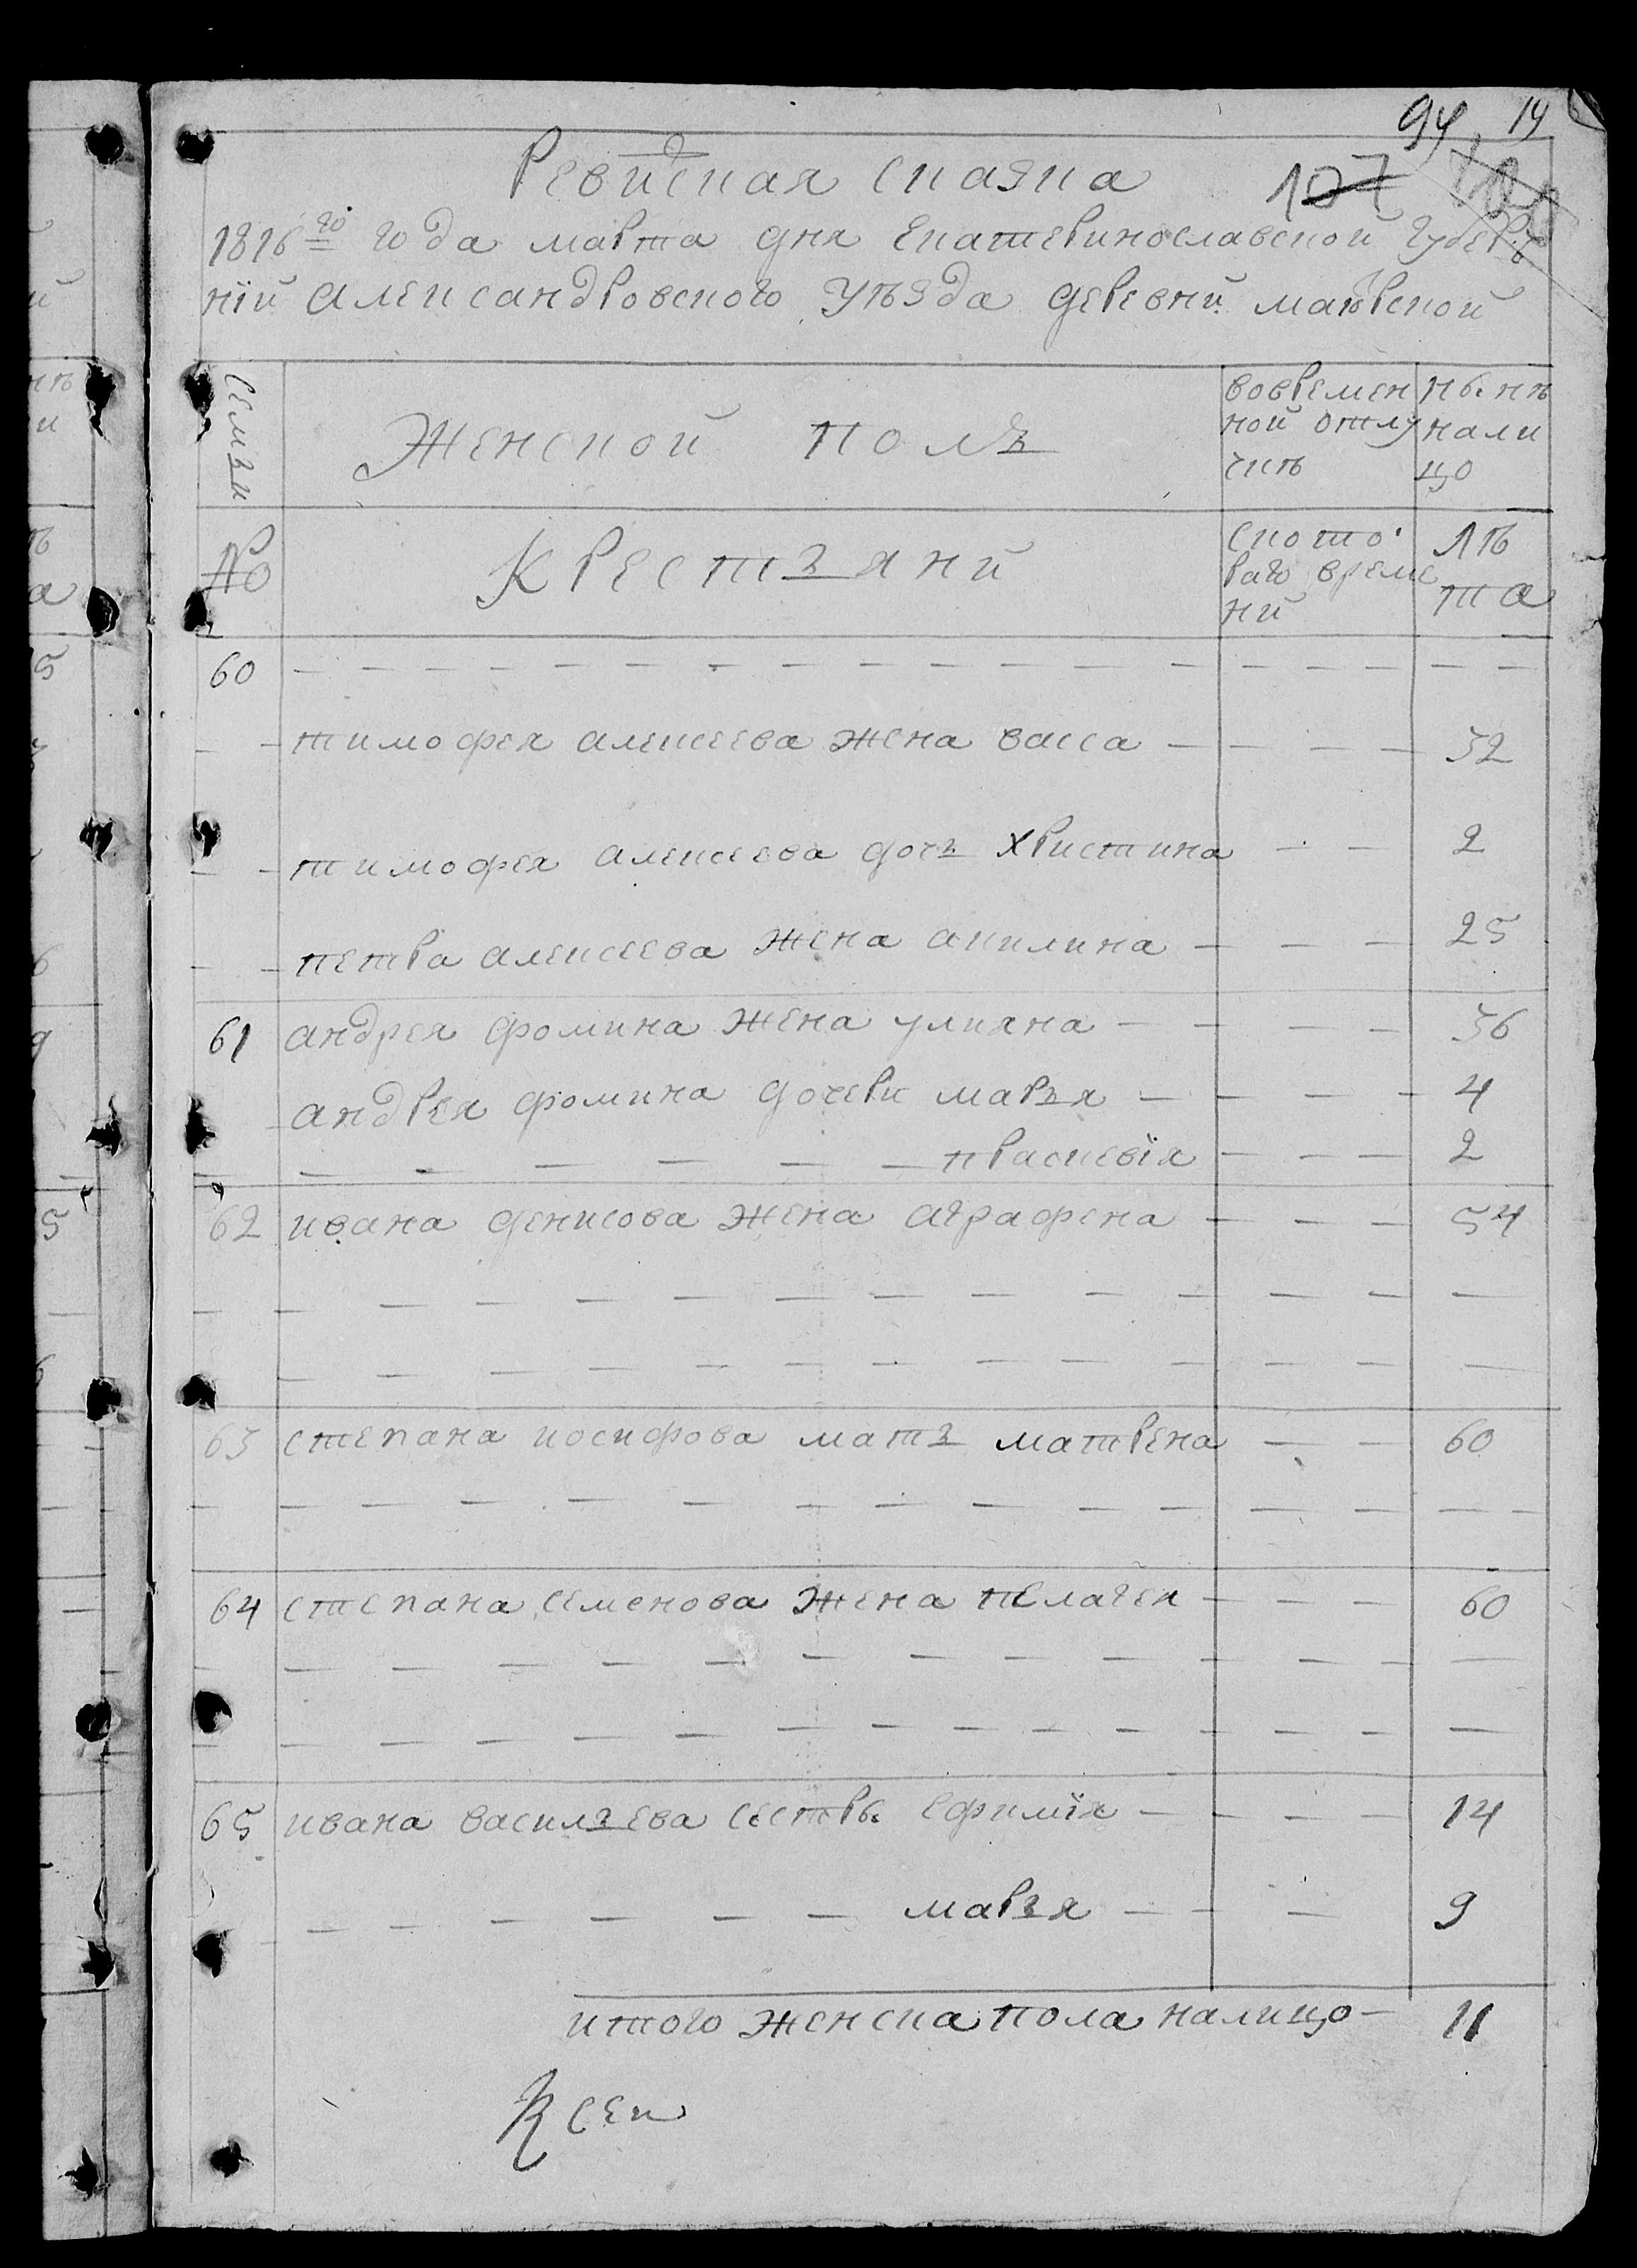 94 14
107
Ревизская сказка
1816го года марта дня Екатеринославской губер
нiи александровского уезда деревни маѣрской
Семьи
Женской полъ
вовремен
ной отлу
чкѣ
ныне
нали
цо
№
Крестьяни
ското
раго време
ни
лѣ
та
60
тимофея алексеева жена васса 32
тимофея алексеева дочь христина 2
петра алексеева жена акилина 25
61 андрея фомина жена улияна 36
андрея фомина дочери марья 4
праскевiя 2
62 ивана денисова жена аграфена 54
63 степана иосифова мать матрена 60
64 степана семенова жена пелагея 60
65 ивана васильева сестры ефимiя 14
марья 9
итого женска пола налицо 11
К сеи